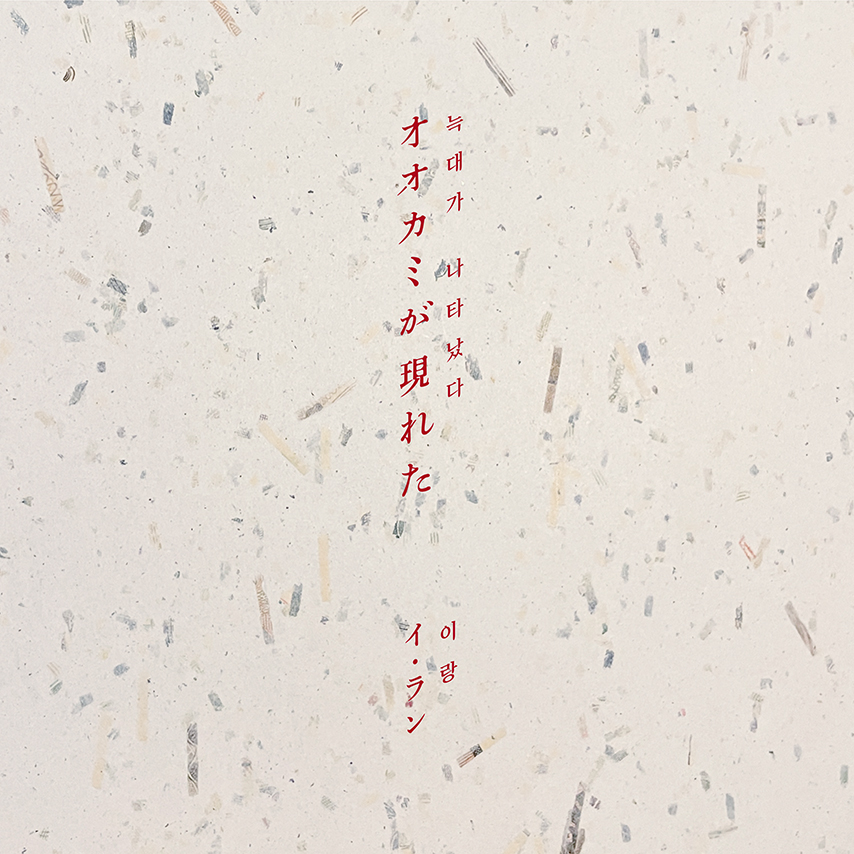 늑대가 나타났다
オオカミが現れた
이랑
イ・ラン